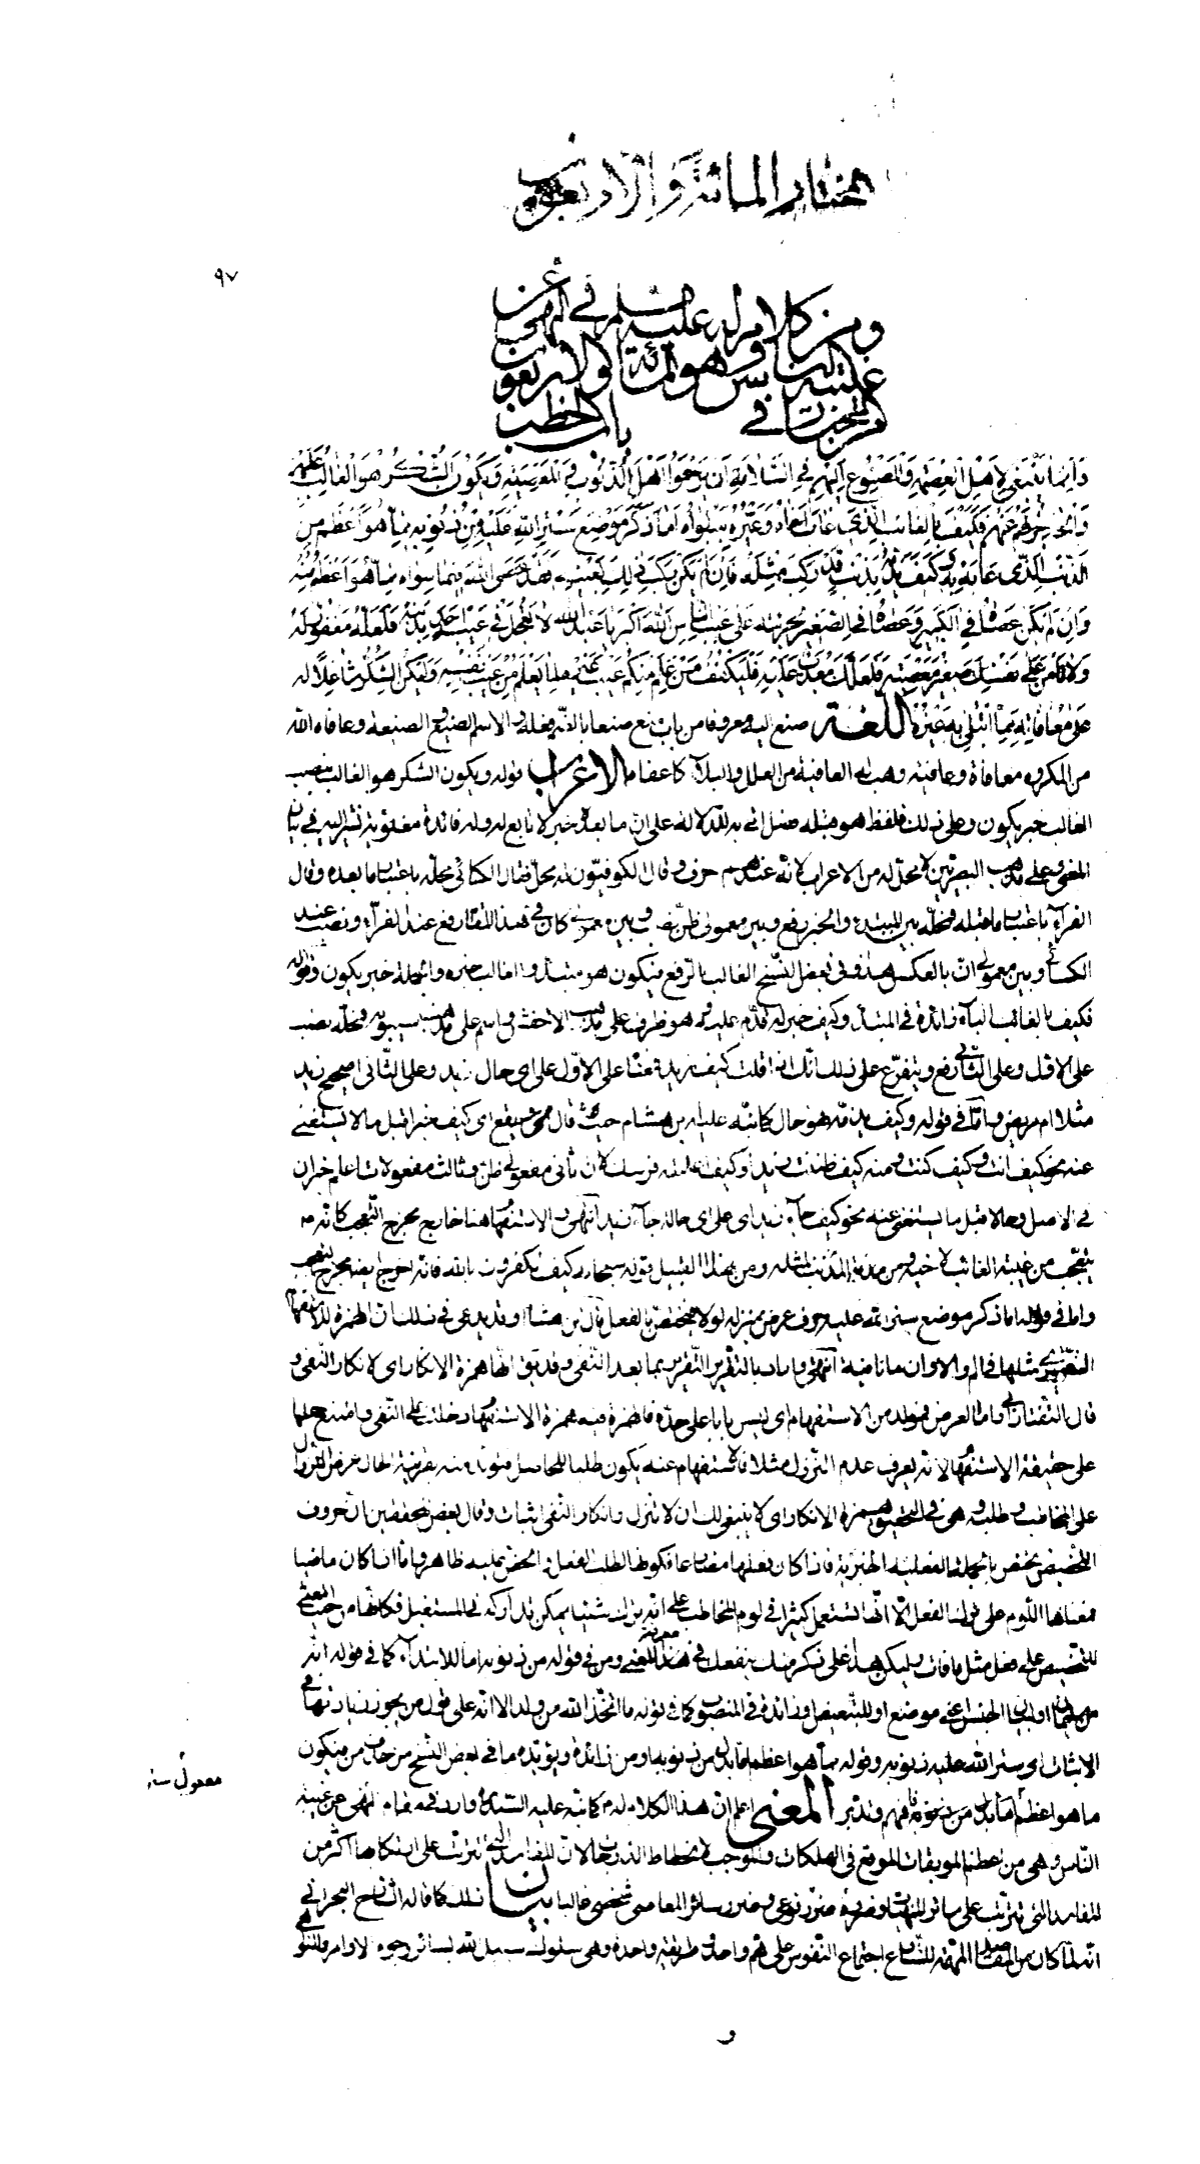 المختار المائة والاربعون
٩٧
ومن كلام له عليه السلم في النهى عن
غيبة الناس وهو المائة والاربعون
من المختار في باب الخطب
وانما ينبغى لاهل العصمة والمصنوع اليهم في السلامة ان يرحموا اهل الذنوب والمعصية ويكون الشكر هو الغالب عليهم
والحاجز لهم عنهم فكيف بالغائب الذى عاب اخاه وعيره ببلواه اما ذكر موضع ستر الله عليه من ذنوبه مما هو اعظم من
الذنب الذى عابه به وكيف يذمه بذنب قد ركب مثله فان لم يكن ركب ذلك الذنب بعينه فقد عصى الله فيما سواه مما هو اعظم منه
وايم الله لئن لم يكن عصاه في الكبير وعصاه في الصغير لجرئته على عيب الناس اكبر يا عبد الله لا تعجل في عيب احد بذنبه فلعله مغفور له
ولا تأمن على نفسك صغير معصية فلعلك معذب عليه فليكفف من علم منكم عيب غيره لما يعلم من عيب نفسه وليكن الشكر شاغلا له
على معافاته مما ابتلى به غيره اللغة صنع اليه معروفا من باب منع صنعا بالضم فعله والاسم الصنيع والصنيعة وعافاه الله
من المكروه معافاة وعافية وهب له العافية من العلل والبلاء كاعفاه الاعراب قوله ويكون الشكر هو الغالب بنصب
الغالب خبر يكون وعلى ذلك فلفظ هو قبله فصل اتى به للدلالة على ان ما بعده خبر لا تابع له وله فائدة معنوية نشير اليه في بيان
المعنى وعلى مذهب البصريين لا محل له من الاعراب لانه عندهم حرف وقال الكوفيون له محل فقال الكسائي محله باعتبار ما بعده وقال
الفراء باعتبار ما قبله فمحله بين المبتدء والخبر رفع وبين معمولى ظن نصب وبين معمولى كان كما في هذا المقام رفع عند الفراء ونصب عند
الكسائي وبين معمولى ان بالعكس هذا وفي بعض النسخ الغالب بالرفع فيكون هو مبتدأ والغالب خبره والجملة خبر يكون وقوله
فكيف بالغائب الباء زائدة في المبتدأ وكيف خبر له قدم عليه وهو ظرف على مذهب الاخفش واسم على مذهب سيبويه فمحله نصب
على الاول وعلى الثاني رفع ويتفرع على ذلك انك اذا قلت كيف زيد فمعناه على الاول على اى حال زيد وعلى الثاني اصحيح زيد
مثلا ام مريض واما في قوله وكيف يذمه فهو حال كما نبه عليه ابن هشام حيث قال ويقع اى كيف خبرا قبل ما لا يستغنى
عنه نحو كيف انت وكيف كنت ومنه كيف ظننت زيدا وكيف اعلمته فرسك لان ثاني مفعولى ظن وثالث مفعولات اعلم خبران
في الاصل وحالا قبل ما يستغنى عنه نحو كيف جاء زيد اى على اى حالة جاء زيد انتهى والاستفهام هنا خارج مخرج التعجب كانه
يتعجب من غيبة الغائب لاخيه ومن مذمة المذنب لمثله ومن هذا القبيل قوله سبحانه كيف تكفرون بالله فانه اخرج ايضا مخرج التعجب
واما في قوله اما ذكر موضع ستر الله عليه حرف عرض بمنزلة لولا فيختص بالفعل قال ابن هشام وقد يدعى في ذلك ان الهمزة للاستفهام
التقريرى مثلها في الم والا وان ما نافية انتهى واراد بالتقرير التقرير بما بعد النفى وقد يق انها همزة الانكار اى لانكار النفى و
قال التفتازاني واما العرض فمولد من الاستفهام اى ليس بابا على حدة فالهمزة فيه همزة الاستفهام دخلت على النفى وامتنع حملها
على حقيقة الاستفهام لانه يعرف عدم النزول مثلا فالاستفهام عنه يكون طلبا للحاصل فتولد منه بقرينة الحال عرض النزول
على المخاطب وطلبه وهى في التحقيق همزة الانكار اى لا ينبغى لك ان لا تنزل وانكار النفى اثبات وقال بعض المحققين ان حروف
التحضيض تختص بالجملة الفعلية الخبرية فاذا كان فعلها مضارعا فكونها لطلب الفعل والحض عليه ظاهر واما اذا كان ماضيا
فمعناها اللوم على ترك الفعل الا انها تستعمل كثيرا في لوم المخاطب على انه ترك شيئا يمكن تداركه في المستقبل فكانها من حيث المعنى
للتحضيض على فعل مثل ما فات وليكن هذا على ذكر منك ينفعك في معرفة هذا المعنى ومن في قوله من ذنوبه اما للابتداء كما في قوله انه
من سليمان او لبيان الجنس اعنى موضع او للتبعيض او زائدة في المنصوب كما في قوله ما اتخذ الله من ولد الا انه على قول من يجوز زيادتها في
الاثبات اى ستر الله عليه ذنوبه وقوله مما هو اعظم بدل من ذنوبه او من زائدة ويؤيده ما في بعض النسخ من حذف من فيكون
ما هو اعظم بدل من ذنوبه فافهم وتدبر المعنى اعلم ان هذا الكلام له كما نبه عليه السيد وارد في مقام النهى عن غيبة
الناس وهى من اعظم الموبقات الموقع في الهلكات والموجب لانحطاط الدرجات لان المفاسد التى تترتب على ارتكابها اكثر من
المفاسد التى تترتب على سائر المنهيات وضررها ضرر نوعى وضرر سائر المعاصى شخصى غالبا بيان ذلك كما قاله الشارح البحراني
انه لما كان من المقاصد المهمة للشارع اجتماع النفوس على هم واحد وطريقة واحدة وهى سلوك سبيل الله بسائر وجوه الاوامر والنوا
هى
معمول سنه
و